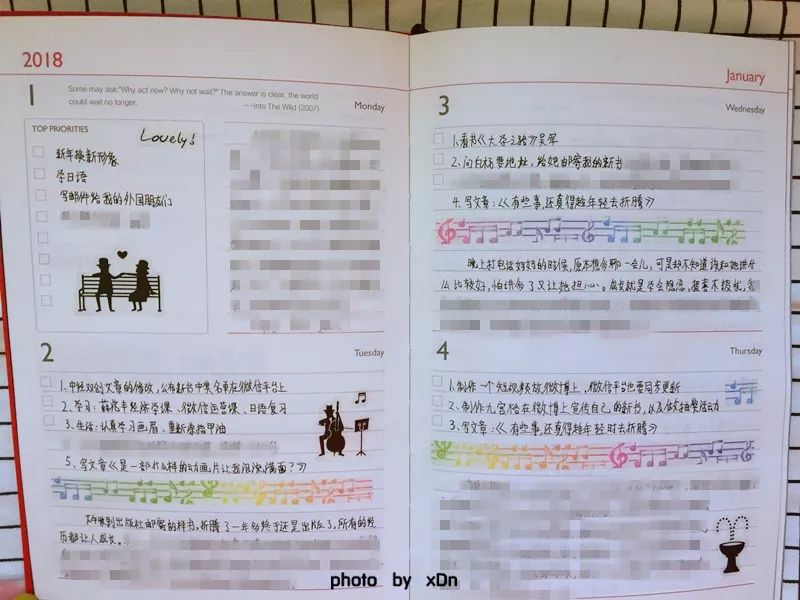 2018
1
Some may ask:"Why act now? Why not wait?" The answer is clear, the world
could wait no longer.
--Into The Wild (2007)
Monday
TOP PRIORITIES
Lovely!
新年换新形象
学日语
写邮件给我的外国朋友们
2
Tuesday
1、中轻双创文章的修改,公布新书中奖名单在微信平台上
2、学习:薛兆丰经济学课、微信运营课、日语复习
3、生活:认真学习画眉、重新涂指甲油
5、写文章《是一部什么样的动画片让我泪流满面?》
下午收到出版社邮寄的样书,折腾了一年多终于还是出版了,所有的经
历都让人成长。
January
3
Wednesday
1、看书《大学之路》吴军
2、问白杨要地址,给她邮寄我的新书
4、写文章:《有些事,还真得趁年轻去折腾》
晚上打电话给妈妈的时候,原本想多聊一会儿,可是却不知道该和她讲什
么比较好,怕讲多了又让她担心。成长就是学会隐忍,报喜不报忧,
4
Thursday
1、制作一个短视频放微博上,微信平台也要同步更新
2、制作九宫格在微博上宣传自己的新书,以及做好抽奖活动
3、写文章:《有些事,还真得趁年轻时去折腾》
photo by xDn